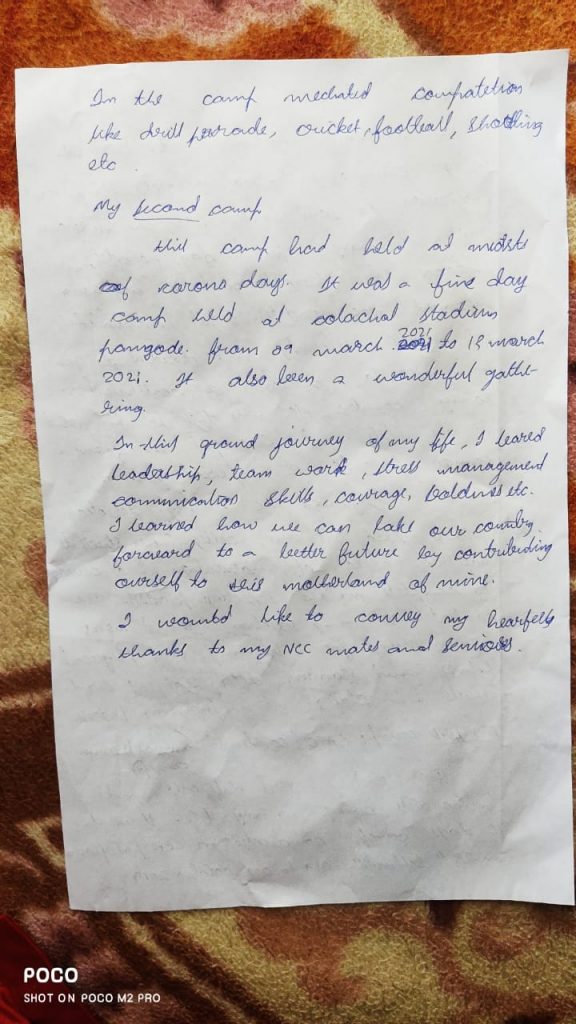 In the camp mediated compatetion
like drill parade, cricket, football, shotting
etc.
My second camp
this camp had held at midst
of corono days. It was a five day
camp held at colachal stadium
pangode. from 09 march 2021 to 13 march
2021. It also been a wonderful gathe-
ring.
In this ground journey of my life, I leared
leadership, team work, stress management
communication skills, courage, boldness etc.
I learned how we can take our country
forward to a better future by contributing
ourself to this motherland of mine.
I would like to convey my hearfelt
thanks to my NCC mates and seniors.
POCO
SHOT ON POCO M2 PRO